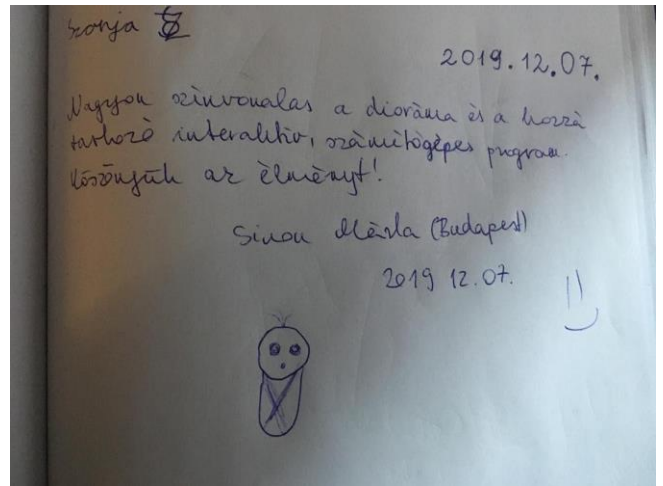 Szonja
2019.12.07.
Nagyon színvonalas a dioráma és a hozzá
tartozó interaktív, számítógépes program.
Köszönjük az élményt!
Simon Márta (Budapest)
2019 12.07.